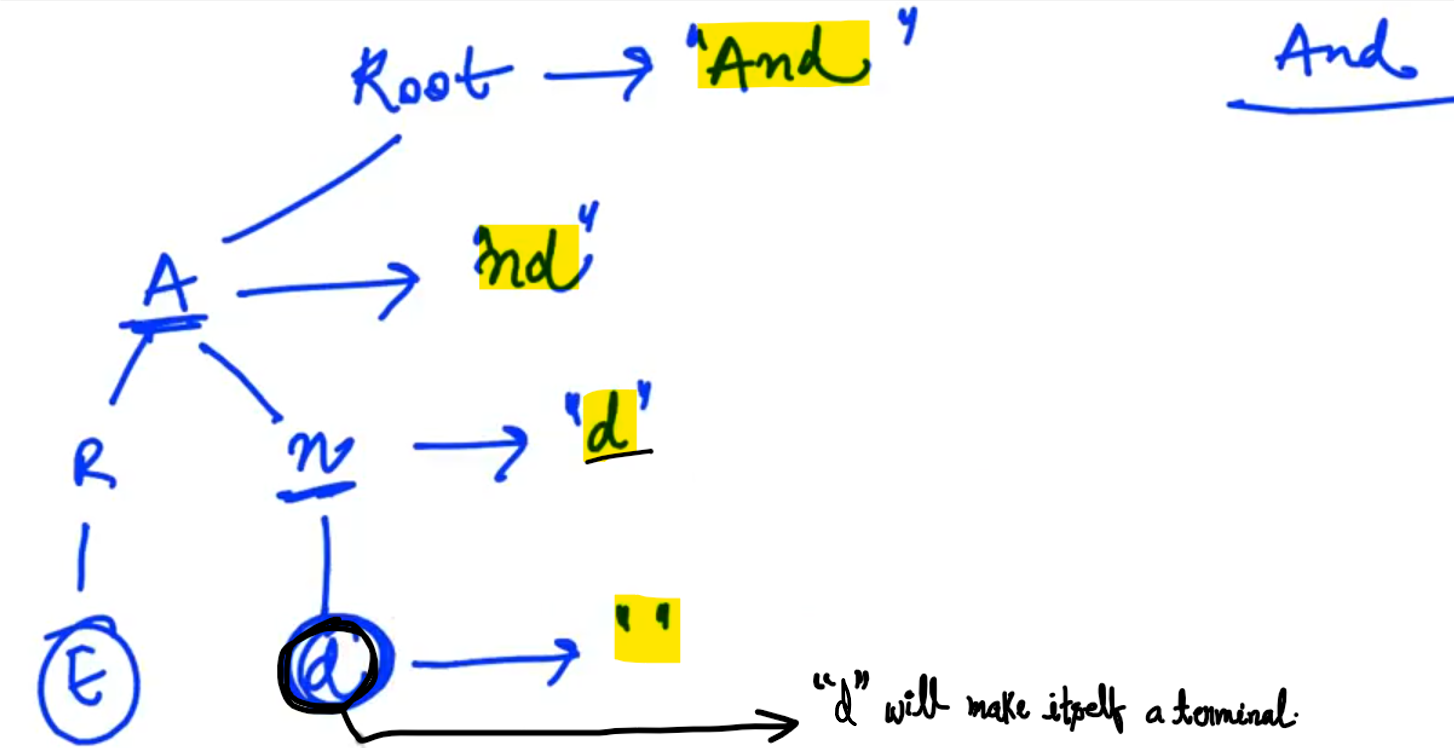 Root → "And"
And
A → "nd"
R n → "d"
E d → " "
"d" will make itself a terminal.